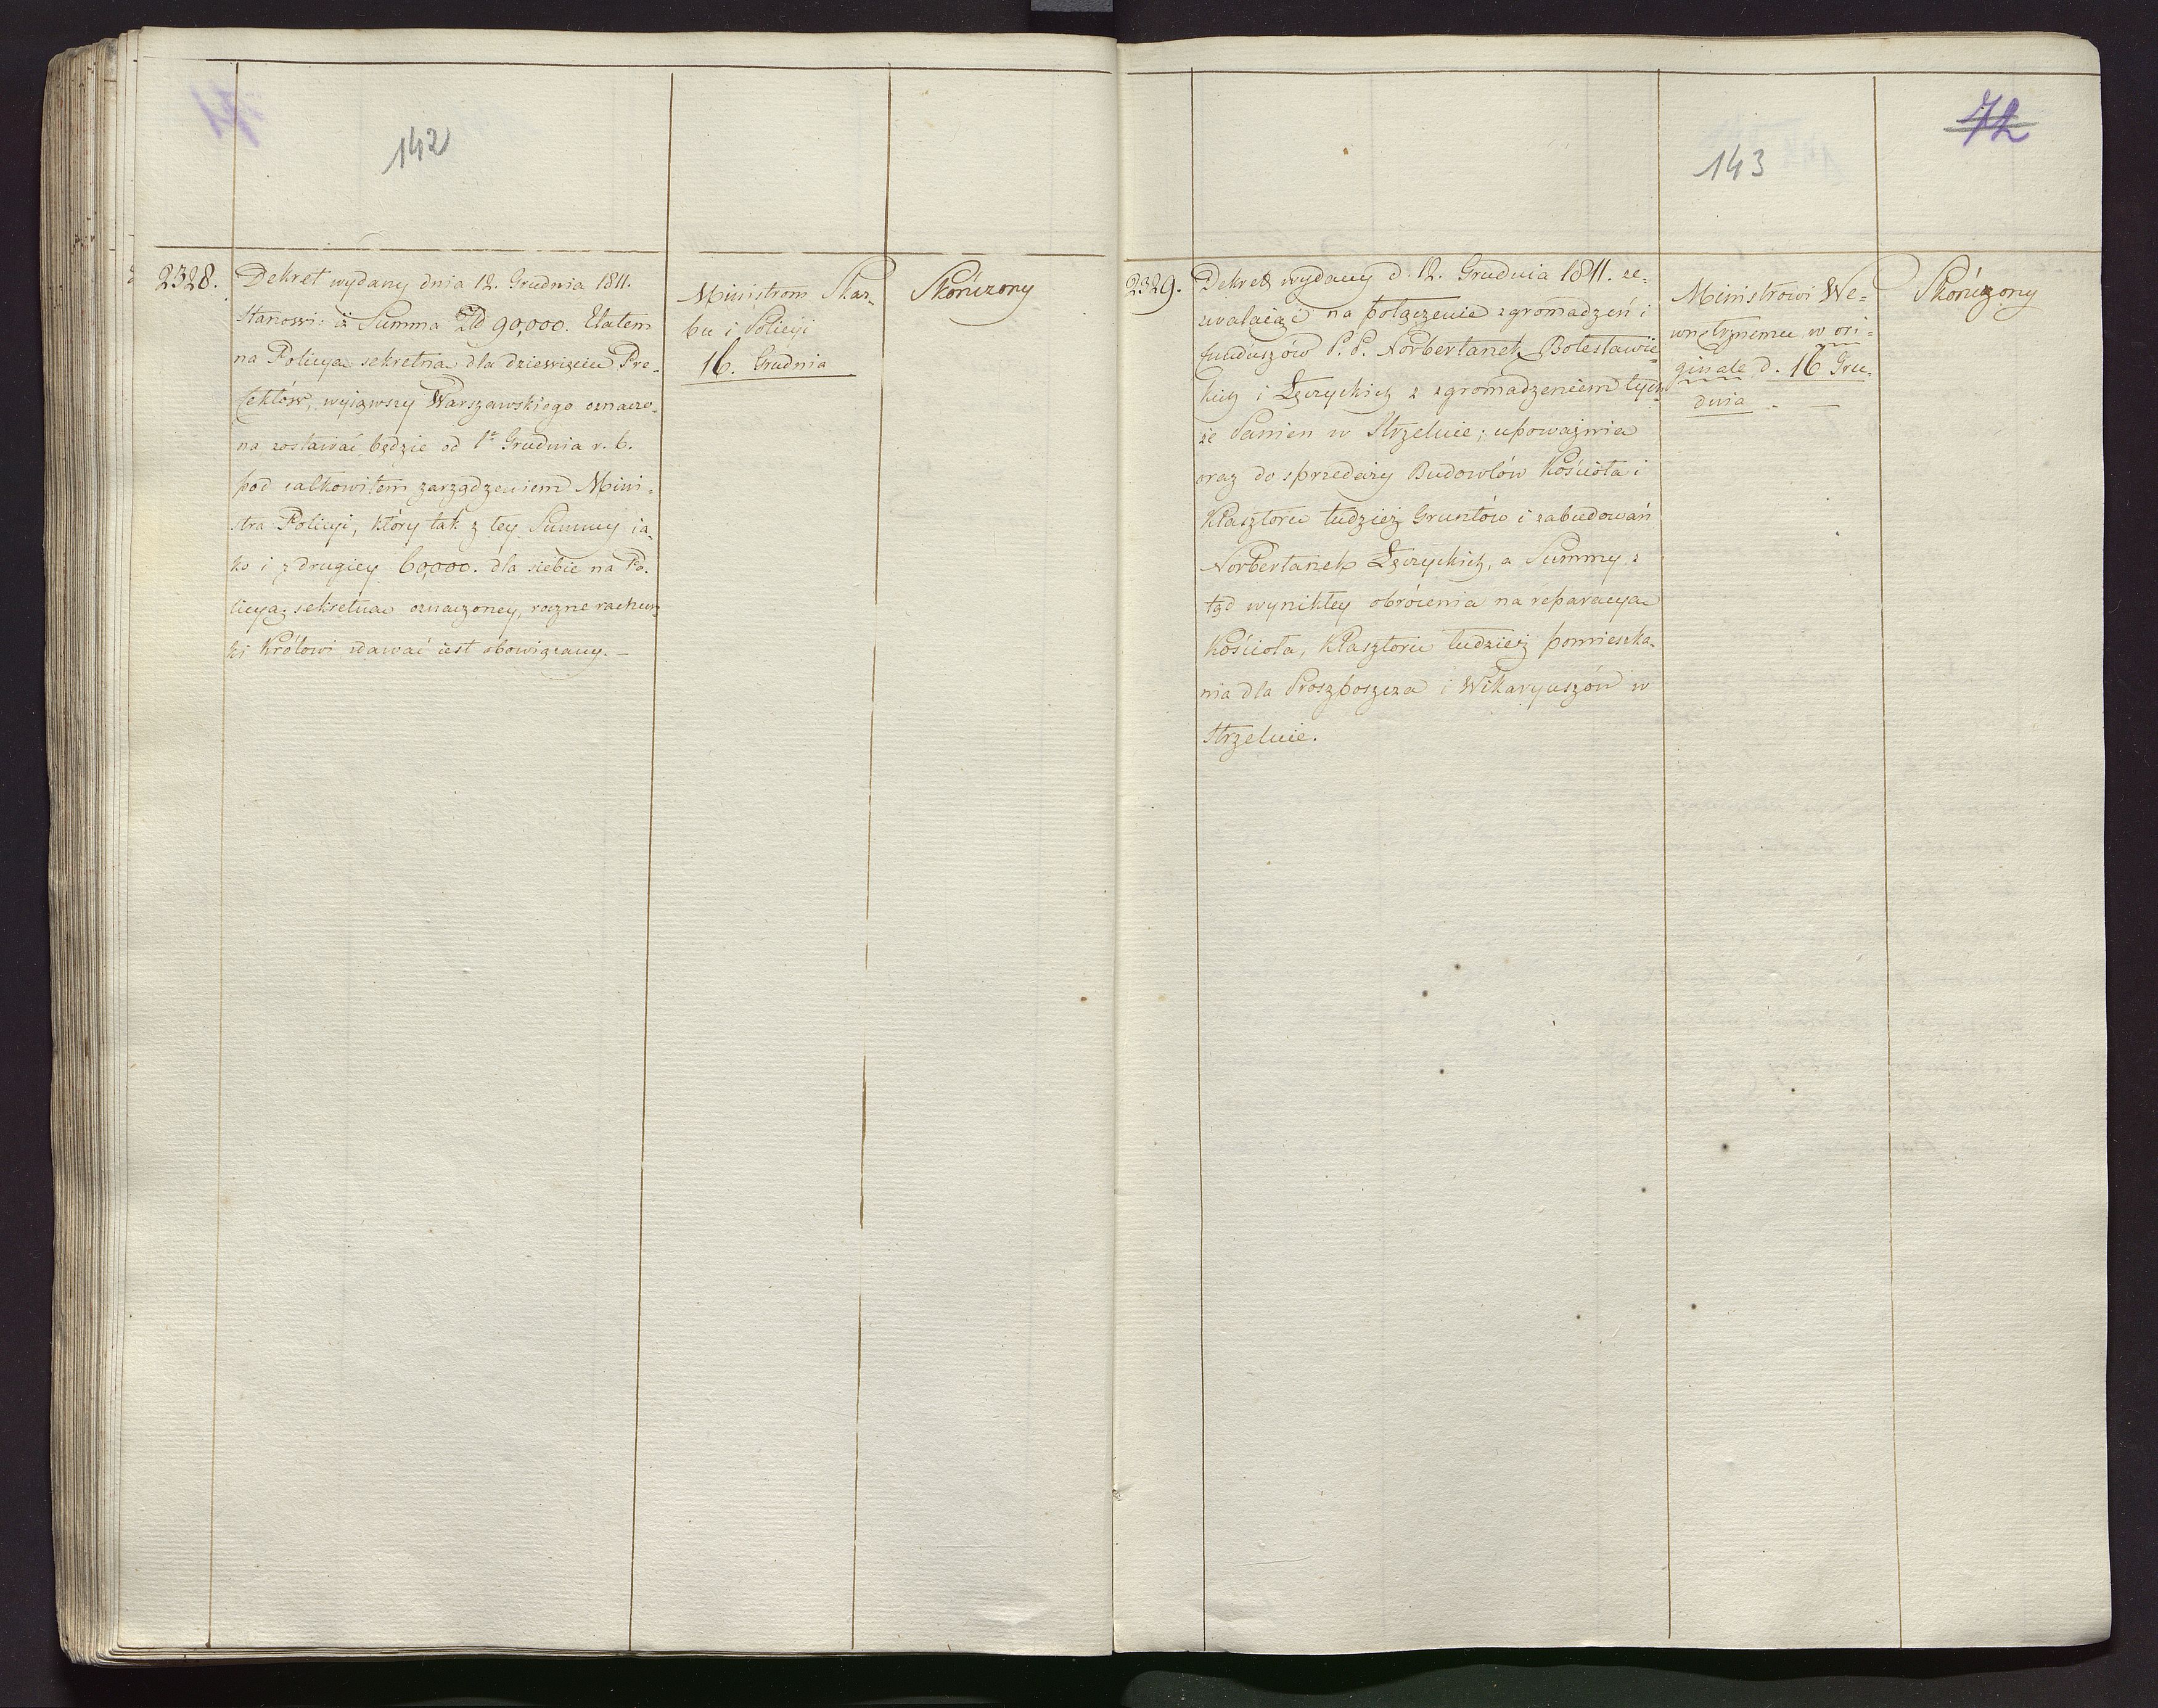 142
2328.
Dekret wydany dnia 12. Grudnia 1811.
Stanowi: iż Summa Zł 90,000. Etatem
na Policyą sekretną dla dziewięciu Pre-
fektów, wyiąwszy Warszawskiego oznaczo-
na zostawać będzie od 1º Grudnia r. b.
pod całkowitem zarządzeniem Mini-
stra Policyi, który tak z tey Summy ia-
ko i z drugiey 60,000. dla siebie na Po-
licyą sekretną oznaczoney, roczne rachun-
ki Królowi zdawać iest obowiązany. —
Ministrom Skar-
bu i Policyi
16. Grudnia
Skończony
72
143
2329.
Dekret wydany d. 12. Grudnia 1811. ze-
zwalaiąci na połączenie zgromadzeń i
funduszów P. P. Norbertanek Bolesławic-
kich i Łęczyckich z zgromadzeniem tych-
że Panien w Strzelnie; upoważnia
oraz do sprzedaży Budowlów Kościoła i
Klasztoru tudzież Gruntów i zabudowań
Norbertanek Łęczyckich, a Summy z
tąd wynikłey obrócenia na reparacyą
Kościoła, Klasztoru tudzież pomieszka-
nia dla Proszposzcza i Wikaryuszów w
Strzelnie.
Ministrowi We-
wnętrznemu w ori-
ginale d. 16 Gru-
dnia. —
Skończony